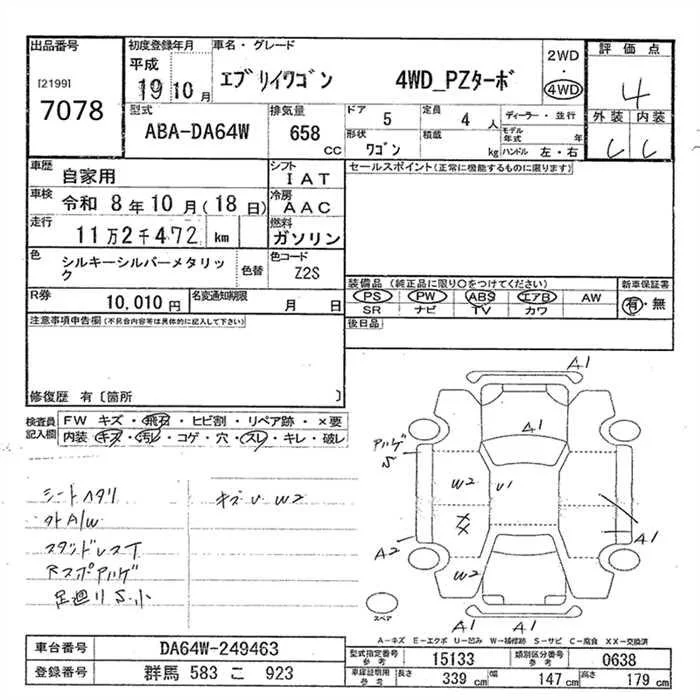 出品番号
[2199]
7078
初度登録年月
平成
19 10月
車名・グレード
エブリイワゴン 4WD_PZターボ
2WD
・
4WD
評価点
4
外装 内装
C C
型式
ABA-DA64W
排気量
658
CC
ドア
5
定員
4 人
ディーラー・並行
形状
ワゴン
積載
kg
モデル年式 年
ハンドル 左・右
車歴
自家用
シフト
IAT
車検
令和 8年10月(18日)
冷房
AAC
走行
11万2千472 km
燃料
ガソリン
色
シルキーシルバーメタリック
色替
色コード
Z2S
R券
10,010円
名変通知期限
月 日
セールスポイント(正常に機能するものに限ります)
装備品 (純正品に限り○をつけてください)
新車保証書
PS PW ABS エアB AW
SR ナビ TV カワ
有・無
後日品
注意事項申告欄(不具合内容等は具体的に記入して下さい)
修復歴 有〔箇所 〕
検査員記入欄
FW キズ・飛石・ヒビ割・リペア跡・×要
内装・キズ・汚レ・コゲ・穴・スレ・キレ・破レ
シートヘタリ
キズU W2
外A/W
スタッドレスT
Rスポアハゲ
足廻りS小
A1
A1
アハゲ
S
W2
U1
XX
A2
W2
A1
A1
A1
スペア
A-キズ E-エクボ U-凹み W-補修跡 S-サビ C-腐食 XX-交換済
車台番号
DA64W-249463
登録番号
群馬 583 こ 923
型式指定番号
参考
15133
類別区分番号
参考
0638
車庫証明用
参考
長さ
339 cm
幅
147 cm
高さ
179 cm